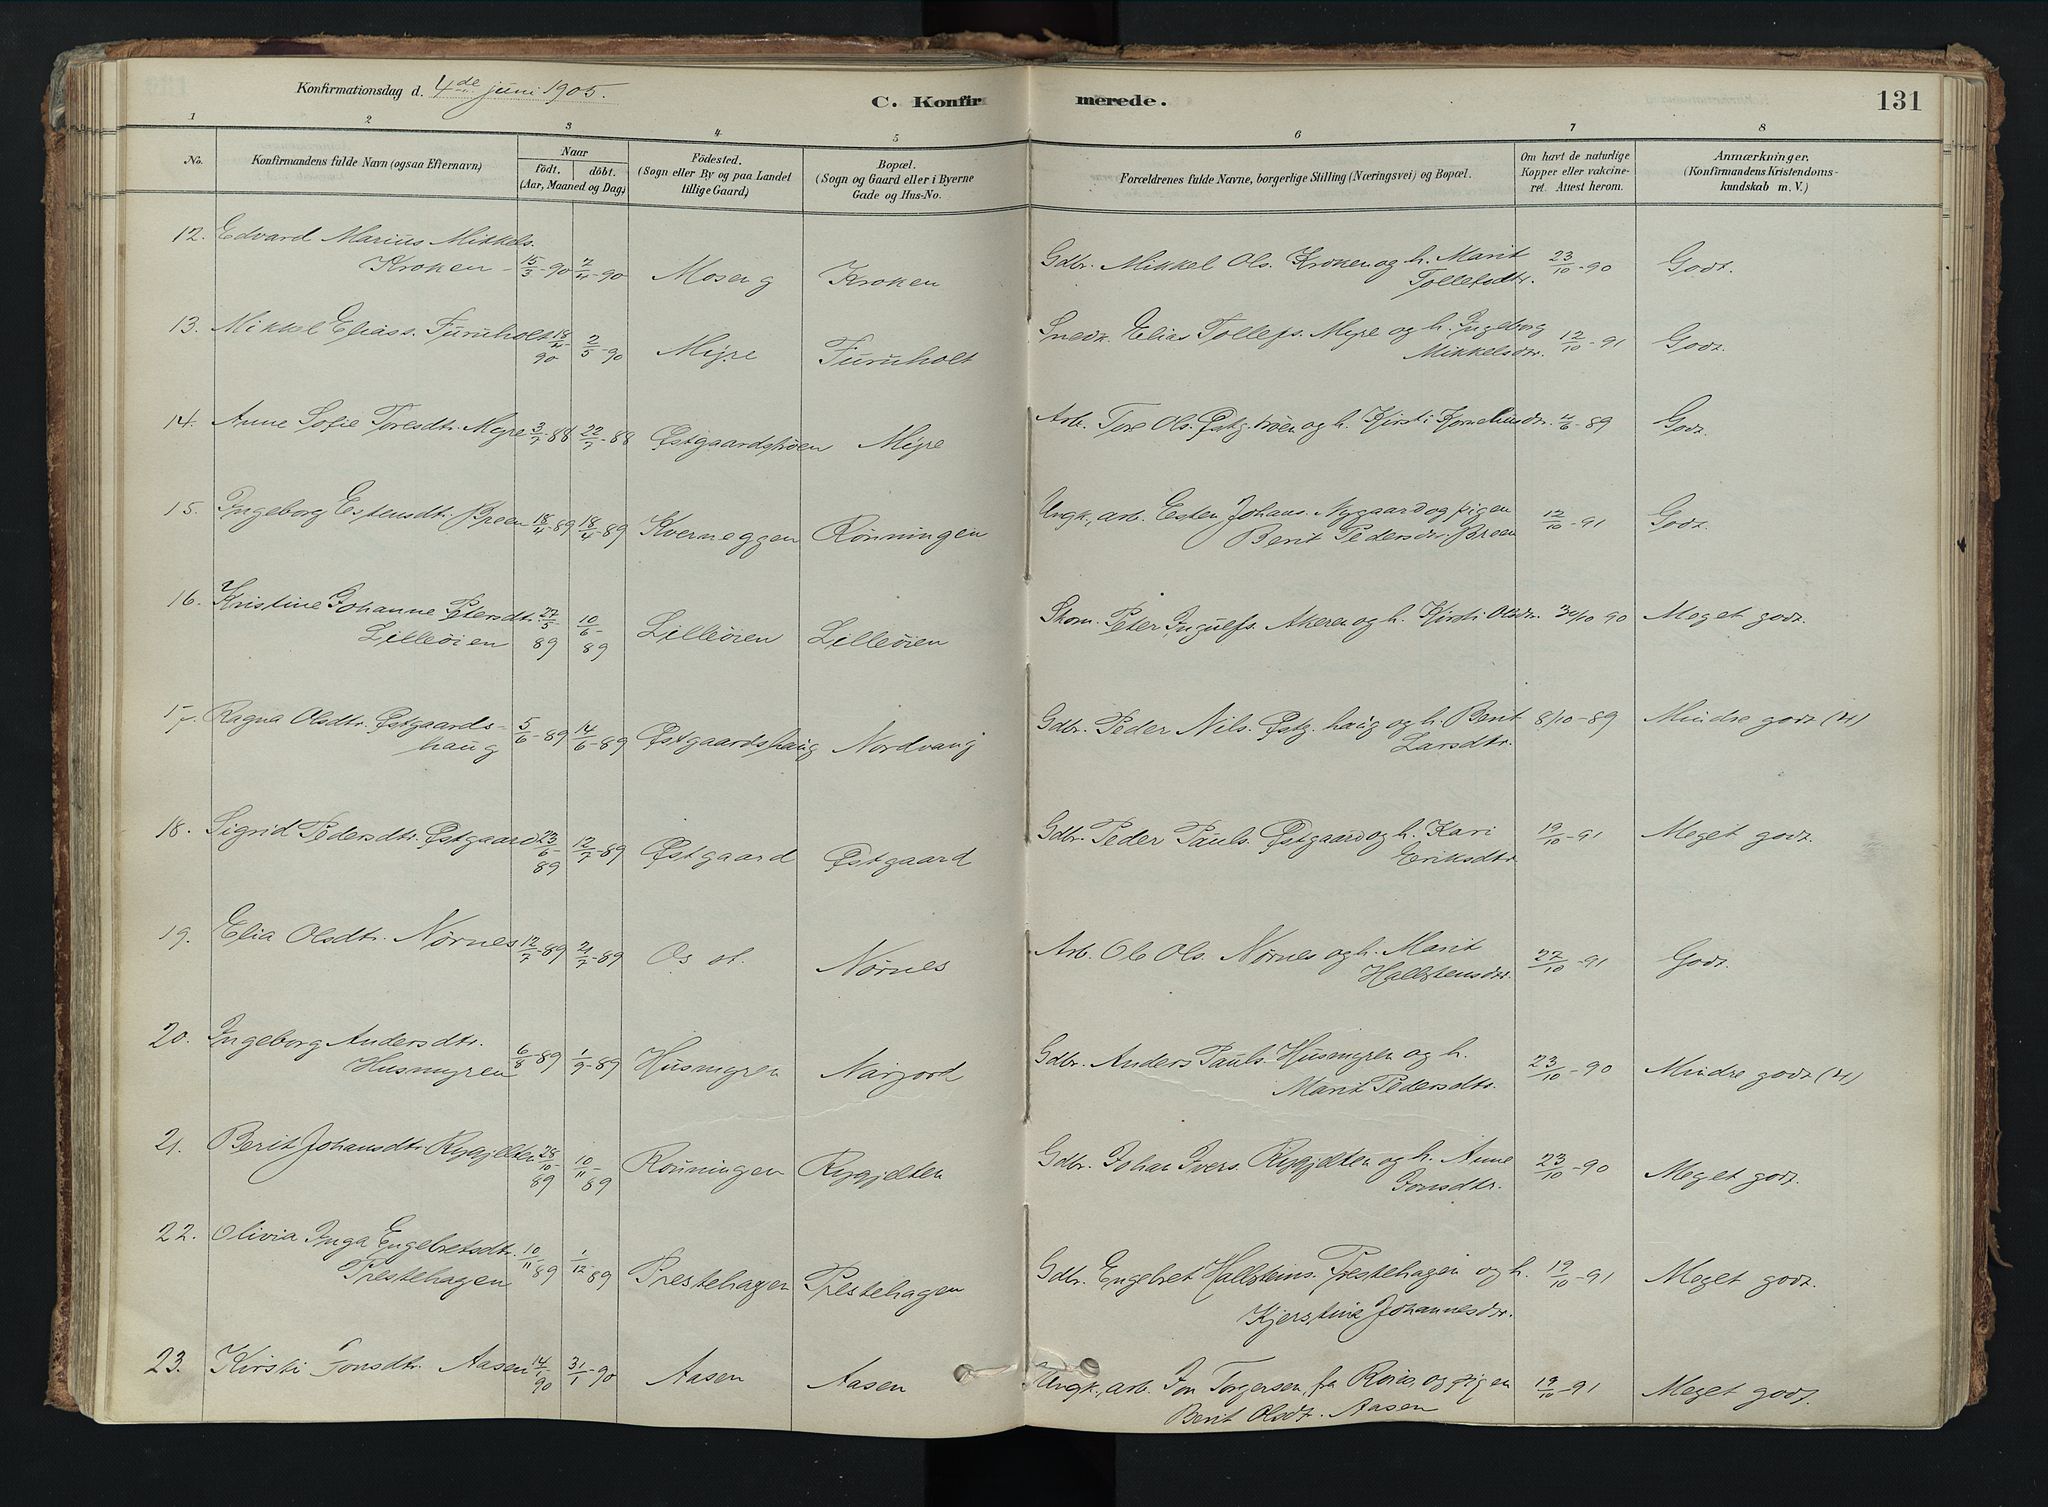 Konfirmationsdag d. 4de juni 1905.
C. Konfirmerede.
131
1 2 3 4 5 6 7 8
No.
Konfirmandens fulde Navn (ogsaa Efternavn)
Naar
födt. döbt.
(Aar, Maaned og Dag.)
Födested.
(Sogn eller By og paa Landet
tillige Gaard.)
Bopæl.
(Sogn og Gaard eller i Byerne
Gade og Hus-No.
Forældrenes fulde Navne, borgerlige Stilling (Næringsvei) og Bopæl.
Om havt de naturlige
Kopper eller vakcine-
ret. Attest herom.
Anmærkninger.
(Konfirmandens Kristendoms-
kundskab m. V.)
12. Edvard Marius Mikkels.
Kroken 15/3-90 7/4-90 Moseng Kroken Gdbr. Mikkel Ols. Kroken og h. Marit 23/10-90 Godt.
Tollefsdtr.
13. Mikkel Eliass. Furuholt 18/4 90 2/5-90 Myre Furuholt Snedk. Elias Tollefs. Myre og h. Ingeborg 12/10-91 Godt.
Mikkelsdtr.
14. Anne Sofie Toresdtr. Myre 3/7-88 22/7-88 Østgaardstrøen Myre Arb. Tore Ols. Østg.trøen og h. Kirsti Korneliusdtr. 4/6-89 Godt.
15. Ingeborg Estensdtr. Breen 18/4-89 18/4-89 Kverneggen Rønningen Ungk., arb. Esten Johans. Nygaard og pigen 12/10-91 Godt.
Berit Pedersdtr. Breen
16. Kristine Johanne Petersdtr. 27/5 89 10/6-89 Lilleøien Lilleøien Skom. Peter Ingulfs. Akeren og h. Kirsti Olsdtr. 30/10 90 Meget godt.
Lilleøien
17. Ragna Olsdtr. Østgaards-
haug 5/6-89 14/6-89 Østgaardshaug Nordvang Gdbr. Peder Nils. Østg.haug og h. Berit 8/10-89 Mindre godt (4)
Larsdtr.
18. Sigrid Pedersdtr. Østgaard 23/6-89 12/7-89 Østgaard Østgaard Gdbr. Peder Pauls. Østgaard og h. Kari 19/10-91 Meget godt.
Eriksdtr.
19. Elia Olsdtr. Nørnes 12/7-89 21/7-89 Os st. Nørnes Arb. Ole Ols. Nørnes og h. Marit 27/10-91 Godt.
Hallstensdtr.
20. Ingeborg Andersdtr.
Husmyren 6/8-89 1/9-89 Husmyren Narjord Gdbr. Anders Pauls. Husmyren og h. 23/10-90 Mindre godt (4)
Marit Pedersdtr.
21. Berit Johansdtr. Rygjelten 28/10-89 10/11-89 Rønningen Rygjelten Gdbr. Johan Ivers. Rygjelten og h. Anne 23/10-90 Meget godt.
Jonsdtr.
22. Olivia Inga Engebretsdtr.
Prestehagen 10/11 89 1/12 89 Prestehagen Prestehagen Gdbr. Engebret Hallsteins. Prestehagen og h. 19/10-91 Meget godt.
Kjerstine Johannesdtr.
23. Kirsti Jonsdtr. Aasen 14/1-90 31/1-90 Aasen Aasen Ungk., arb. Jon Torgersen, fra Røros og pigen 19/10-91 Meget godt.
Berit Olsdt. Aasen